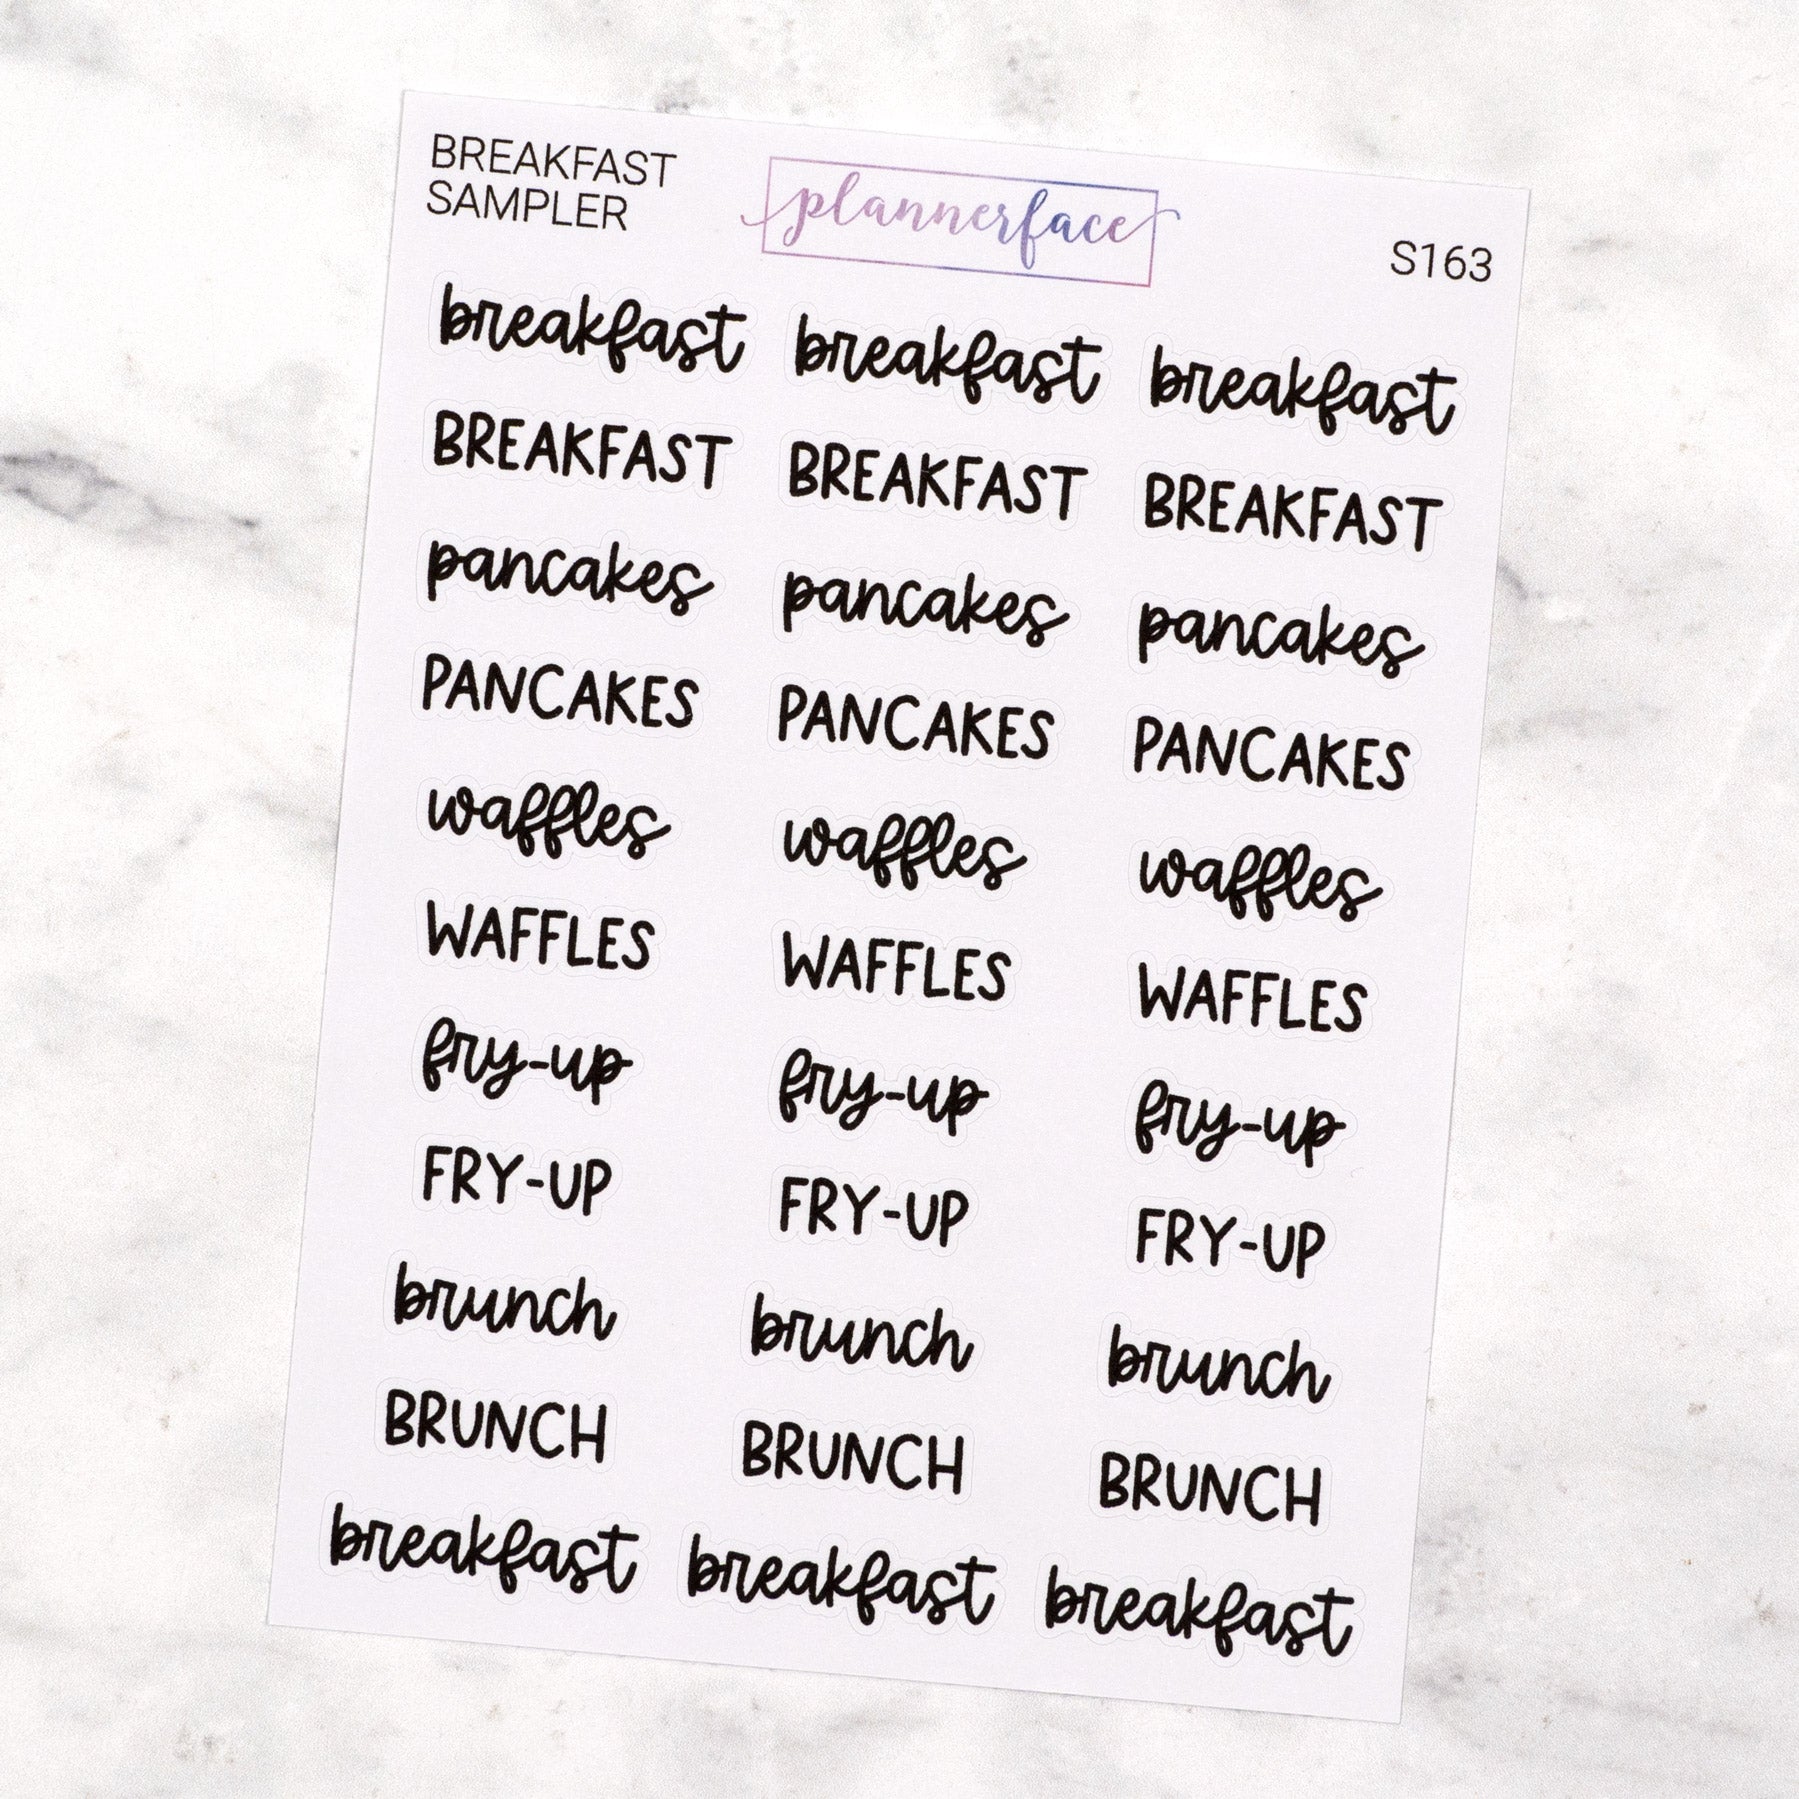 BREAKFAST
SAMPLER
plannerface
S163
breakfast breakfast breakfast
BREAKFAST BREAKFAST BREAKFAST
pancakes pancakes pancakes
PANCAKES PANCAKES PANCAKES
waffles waffles waffles
WAFFLES WAFFLES WAFFLES
fry-up fry-up fry-up
FRY-UP FRY-UP FRY-UP
brunch brunch brunch
BRUNCH BRUNCH BRUNCH
breakfast breakfast breakfast